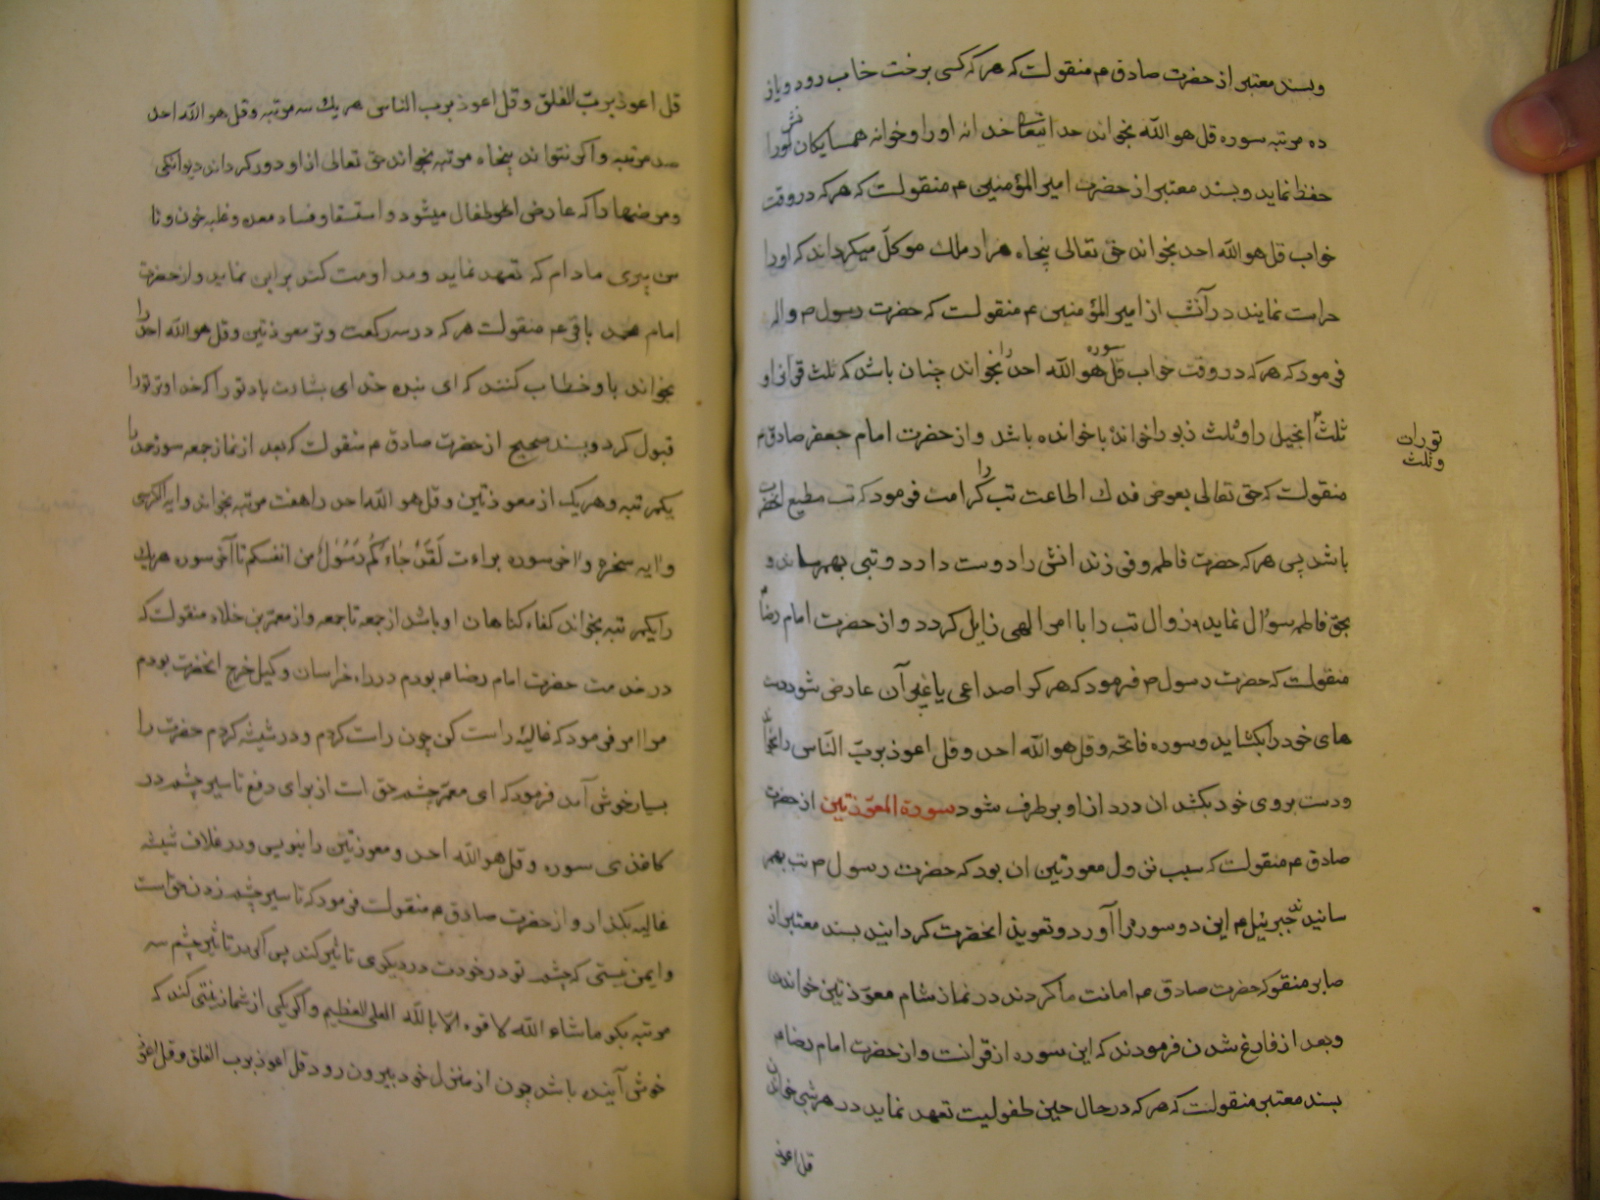 وبسند معتبر از حضرت صادق ع منقولست که هر که کسی برخت خاب رود و یاز
ده مرتبه سوره قل هو الله بخواند خدایتعالی خدانه او را وخوانه همسایکان
حفظ نماید وبسند معتبر از حضرت امیر المؤمنین ع منقولست که هر که در وقت
خواب قل هو الله احد بخواند حق تعالی پنجاه هزار ملک موکل میکرداند که او را
حراست نمایند در آنشب از امیر المؤمنین ع منقولست که حضرت رسول ص واله
فرمود که هر که در وقت خواب سوره قل هو الله احد را بخواند چنان باشد که ثلث قرانی او
ثلث انجیل را وثلث زبور اخواند باخوانده باشد و از حضرت امام جعفر صادق ع
تورات
وثلث
منقولست که حق تعالی بعوض فدک اطاعت تب را کرامت فرمود که تب مطیع انحضرت
باشد پس هر که حضرت فاطمه وفرزندانش را دوست دارد وتبی بهمرساند و
بحق فاطمه سؤال نماید زوال تب را با امر الهی زایل کردد و از حضرت امام رضا ع
منقولست که حضرت رسول ص فرمود که هر کرا صداعی یا غیر آن عارض شود دست
های خود را بکشاید وسوره فاتحه وقل هو الله احد وقل اعوذ برب الناس را بخواند
ودست بروی خود بکشد ان درد از او برطرف شود سورة المعوذتین از حضرت
صادق ع منقولست که سبب نزول معوذتین ان بود که حضرت رسول ص تب بهم
سانیدند جبرئیل ع این دو سوره را آورد وتعویذ انحضرت کردانید بسند معتبر از
صابر منقولکه حضرت صادق ع امانت ما کردند در نماز شام معوذتین خواندند
وبعد از فارغ شدن فرمودند که این سوره از قرانست و از حضرت امام رضا ع
بسند معتبر منقولست که هر که در حال حین طفولیت تعهد نماید در هر شبی خواندن
قل اعوذ
قل اعوذ برب الفلق وقل اعوذ برب الناس هر یک سه مرتبه وقل هو الله احد
صد مرتبه و اکر نتواند پنجاه مرتبه بخواند حق تعالی از او دور کرداند دیوانکی
ومرضها را که عارض اطفال میشود و استسقا وفساد معده وغلبه خون و تا
سن پیری مادام که تعهد نماید ومداومت کند بر این نماید و از حضرت
امام محمد باقر ع منقولست هر که در سه رکعت وتر معوذتین وقل هو الله احد را
بخواند باو خطاب کنند که ای بنده خدای بشارت باد تو را که خدا وتر تو را
قبول کرد وبسند صحیح از حضرت صادق ع منقولست که بعد از نماز جمعه سوره حمد را
یکمرتبه وهر یک از معوذتین وقل هو الله احد را هفت مرتبه بخواند وایه الکرسی
وایه سخره واخر سوره براءت لَقَدْ جَاءَكُمْ رَسُولٌ من انفسکم تا آخر سوره هر یک
را یکمرتبه بخواند کفاره کناهان او باشد از جمعه تا جمعه و از معمر بن خلاد منقولست که
در خدمت حضرت امام رضا ع بودم در راه خراسان وکیل خرج انحضرت بودم
مرا امر فرمود که غالیه راست کن چون راست کردم و در شیشه کردم حضرت را
بسیار خوش آمد فرمود که ای معمر چشم حق است از برای دفع تاسیر چشم در
کاغذی سوره وقل هو الله احد ومعوذتین را بنویس ودر غلاف شیشه
غالیه بکذار و از حضرت صادق ع منقولست فرمود که تاسیر چشم زدن حق است
وایمن نیستی که چشم تو در خودت در دیکری تاثیر کند پس اکر تاثیر چشم سه
مرتبه بکو ماشاء الله لا قوه الا بالله العلی العظیم و اکر یکی از شما زینتی کند که
خوش آینده باشد چون از منزل خود بیرون رود قل اعوذ برب الفلق وقل اعوذ